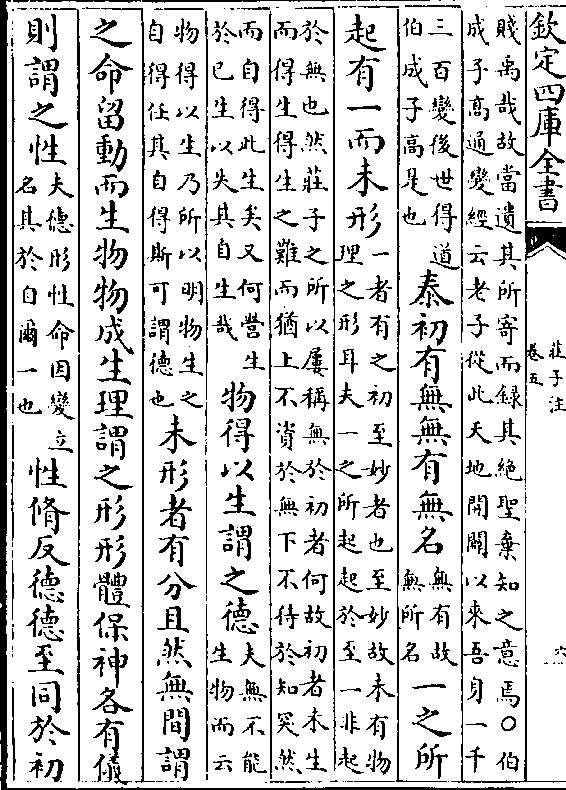 欽定四庫全書
莊子注
卷五
六
賤禹哉故當遺其所寄而録其絶聖棄知之意焉〇伯
成子高通變經云老子從此天地開闢以來吾身一千
三百變後世得道
伯成子高是也
泰初有無無有無名
無有故
無所名
一之所
起有一而未形
一者有之初至妙者也至妙故未有物
理之形耳夫一之所起起於至一非起
於無也然莊子之所以屢稱無於初者何故初者未生
而得生得生之難而猶上不資於無下不待於知突然
而自得此生矣又何營生
於已生以失其自生哉
物得以生謂之德
夫無不能
生物而云
物得以生乃所以明物生之
自得任其自得斯可謂德也
未形者有分且然無間謂
之命留動而生物物成生理謂之形形體保神各有儀
則謂之性
夫德形性命因變立
名其於自爾一也
性脩反德德至同於初